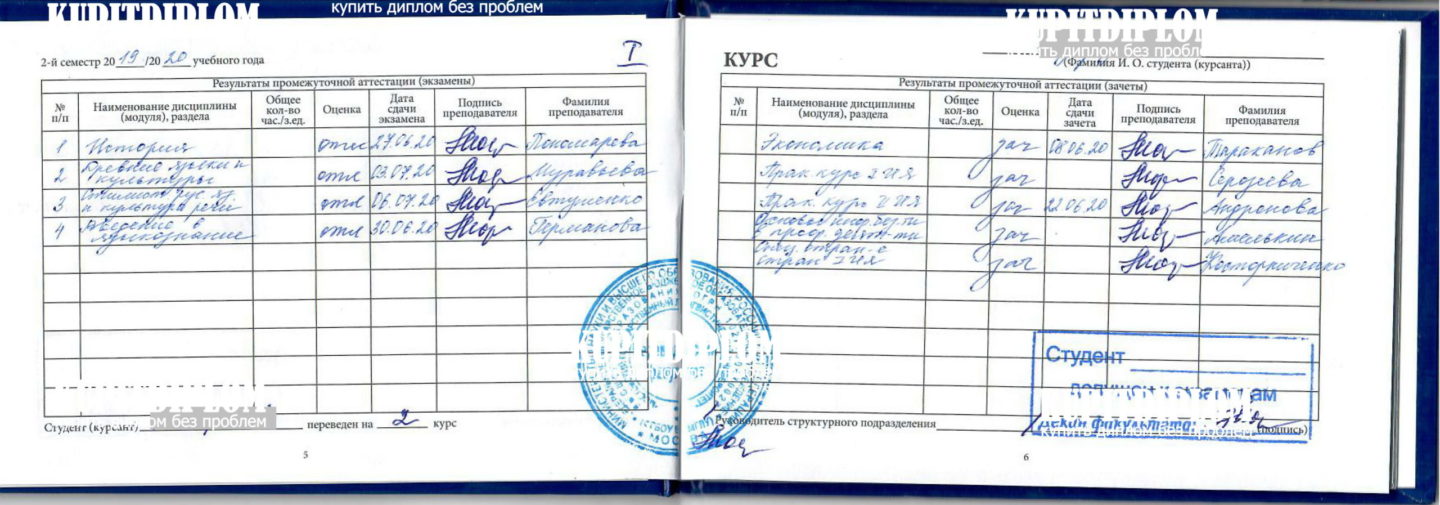 KUPITDIPLOM
купить диплом без проблем
2-й семестр 2019/2020 учебного года
I
Результаты промежуточной аттестации (экзамены)
№ п/п
Наименование дисциплины (модуля), раздела
Общее кол-во час./з.ед.
Оценка
Дата сдачи экзамена
Подпись преподавателя
Фамилия преподавателя
1 История отл 27.06.20 Пономарева
2 Древние языки и культуры отл 03.07.20 Муравьева
3 и культура речи отл 06.07.20 Евтушенко
4 Введение в языкознание отл 30.06.20 Германова
KUPITDIPLOM
без проблем
Студент (курсант) переведен на 2 курс
5
KUPITDIPLOM
купить диплом без проблем
КУРС
(Фамилия И. О. студента (курсанта))
Результаты промежуточной аттестации (зачеты)
№ п/п
Наименование дисциплины (модуля), раздела
Общее кол-во час./з.ед.
Оценка
Дата сдачи зачета
Подпись преподавателя
Фамилия преподавателя
Экономика зач 08.06.20 Тараканов
Прак курс 2 ИЯ зач Сергеева
Прак. курс ИЯ зач 22.06.20 Андронова
зач
зач
KUPITDIPLOM
Студент
декан факультета
Руководитель структурного подразделения
купить диплом без проблем
(подпись)
6